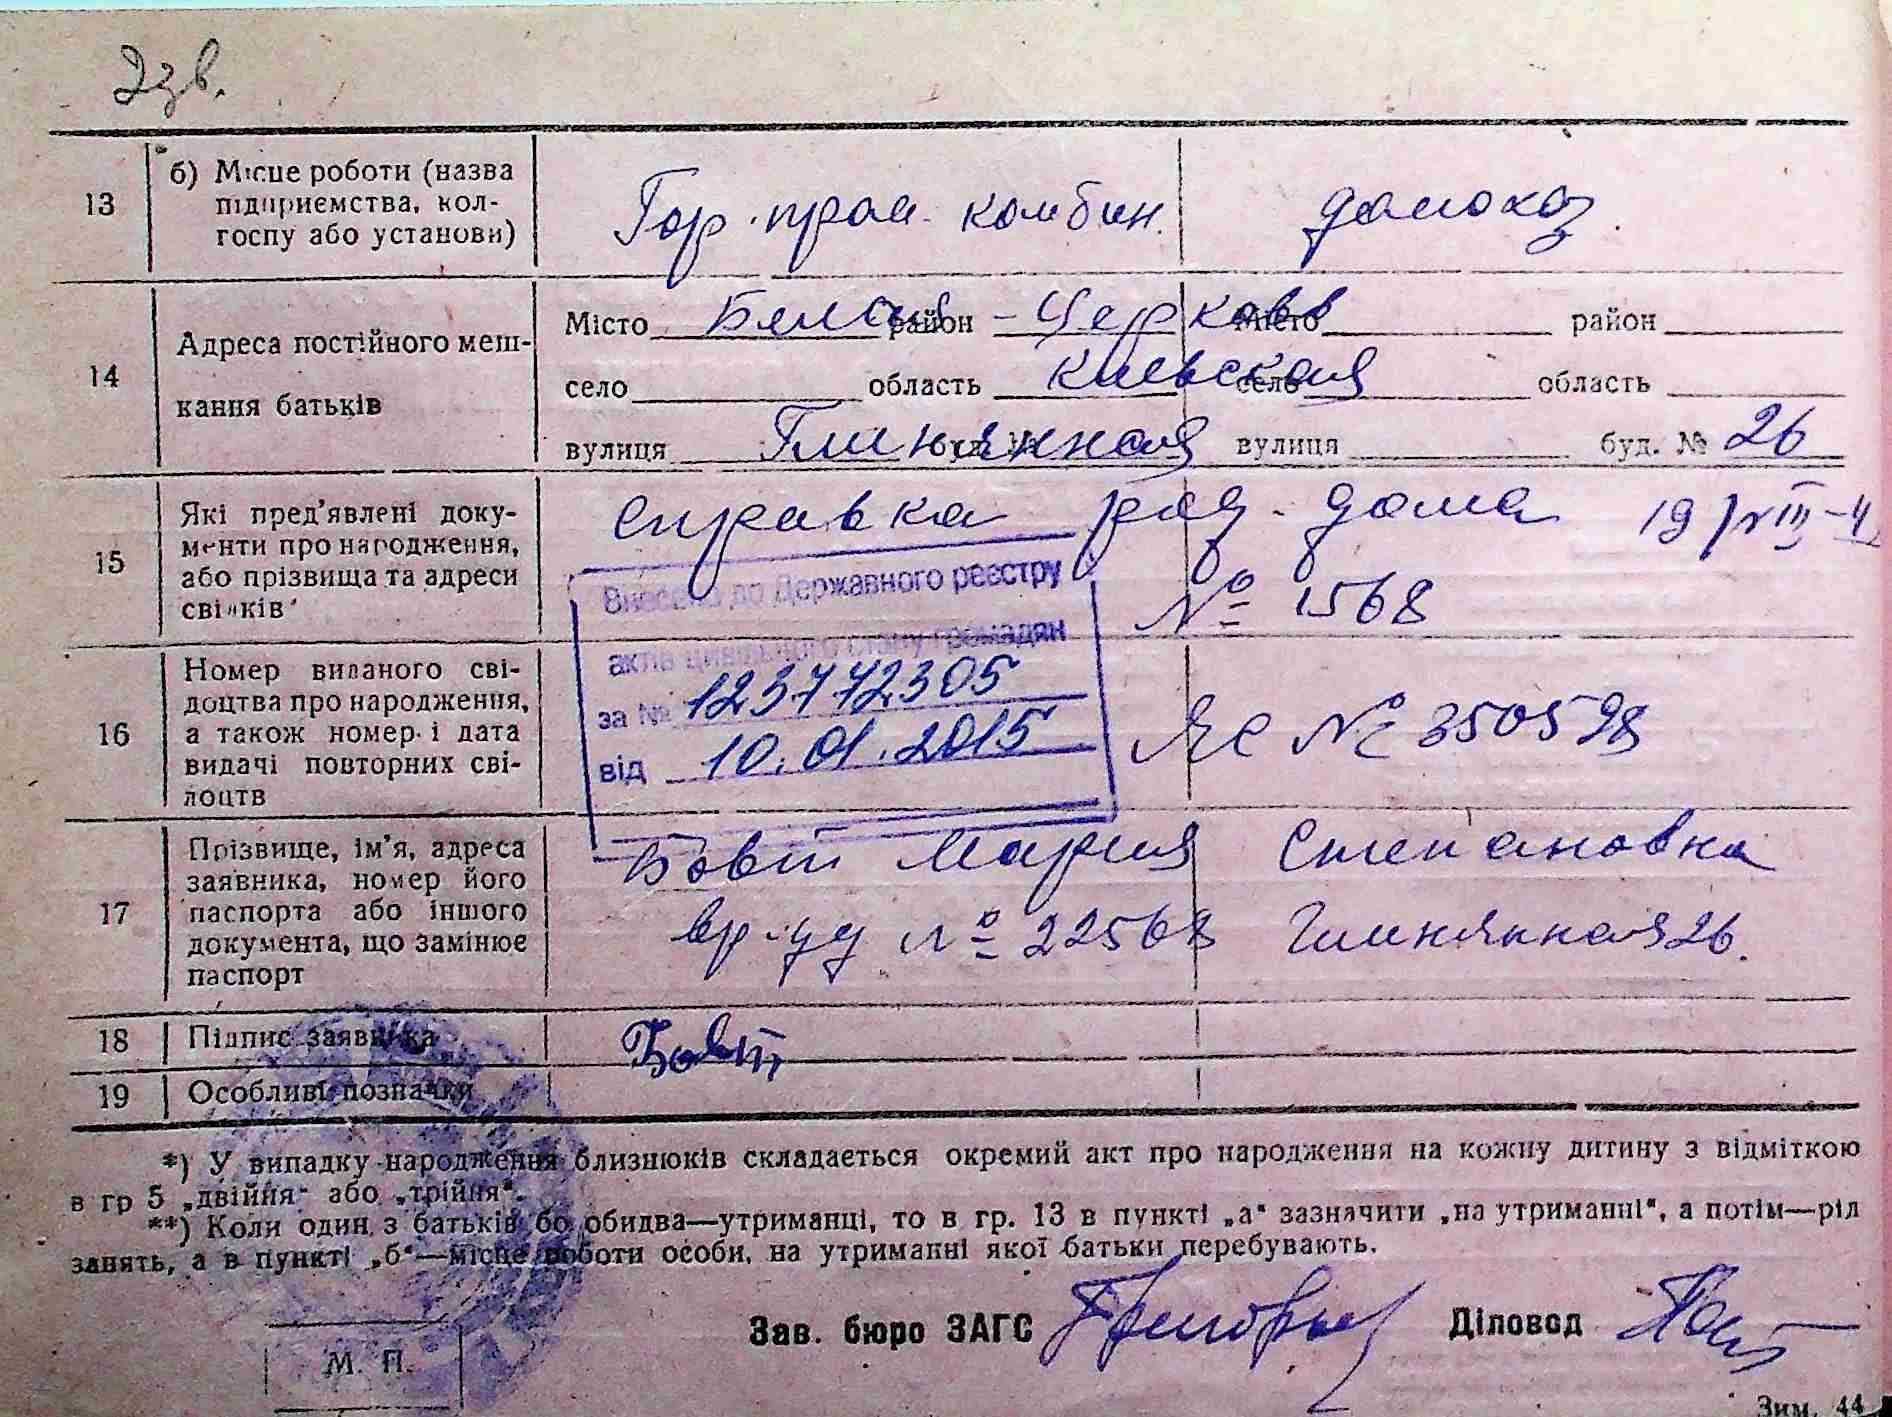 13
б) Місце роботи (назва
підприємства, кол-
госпу або установи)
Гор. пром. комбин.
домохоз.
14
Адреса постійного меш-
кання батьків
Місто Белая район - Церковь Місто район
село область Киевская село область
вулиця Глиняная вулиця буд. № 26
15
Які пред'явлені доку-
менти про народження,
або прізвища та адреси
свідків
Справка род. дома 19/VIII-
№ 1568
Внесено до Державного реєстру
актів цивільного стану громадян
за № 123772305
від 10.01.2015
16
Номер виданого сві-
доцтва про народження,
а також номер і дата
видачі повторних сві-
доцтв
№ 350598
17
Прізвище, ім'я, адреса
заявника, номер його
паспорта або іншого
документа, що замінює
паспорт
Бовт Мария Степановна
вр. уд № 22568 Глиняная 26.
18
Підпис заявника
Бовт
19
Особливі позначки
*) У випадку народження близнюків складається окремий акт про народження на кожну дитину з відміткою
в гр 5 „двійня" або „трійня".
**) Коли один з батьків бо обидва—утриманці, то в гр. 13 в пункті „а" зазначити „на утриманні", а потім—рід
занять, а в пункті „б"—місце роботи особи, на утриманні якої батьки перебувають.
Зав. бюро ЗАГС Діловод
М. П.
Зим. 44